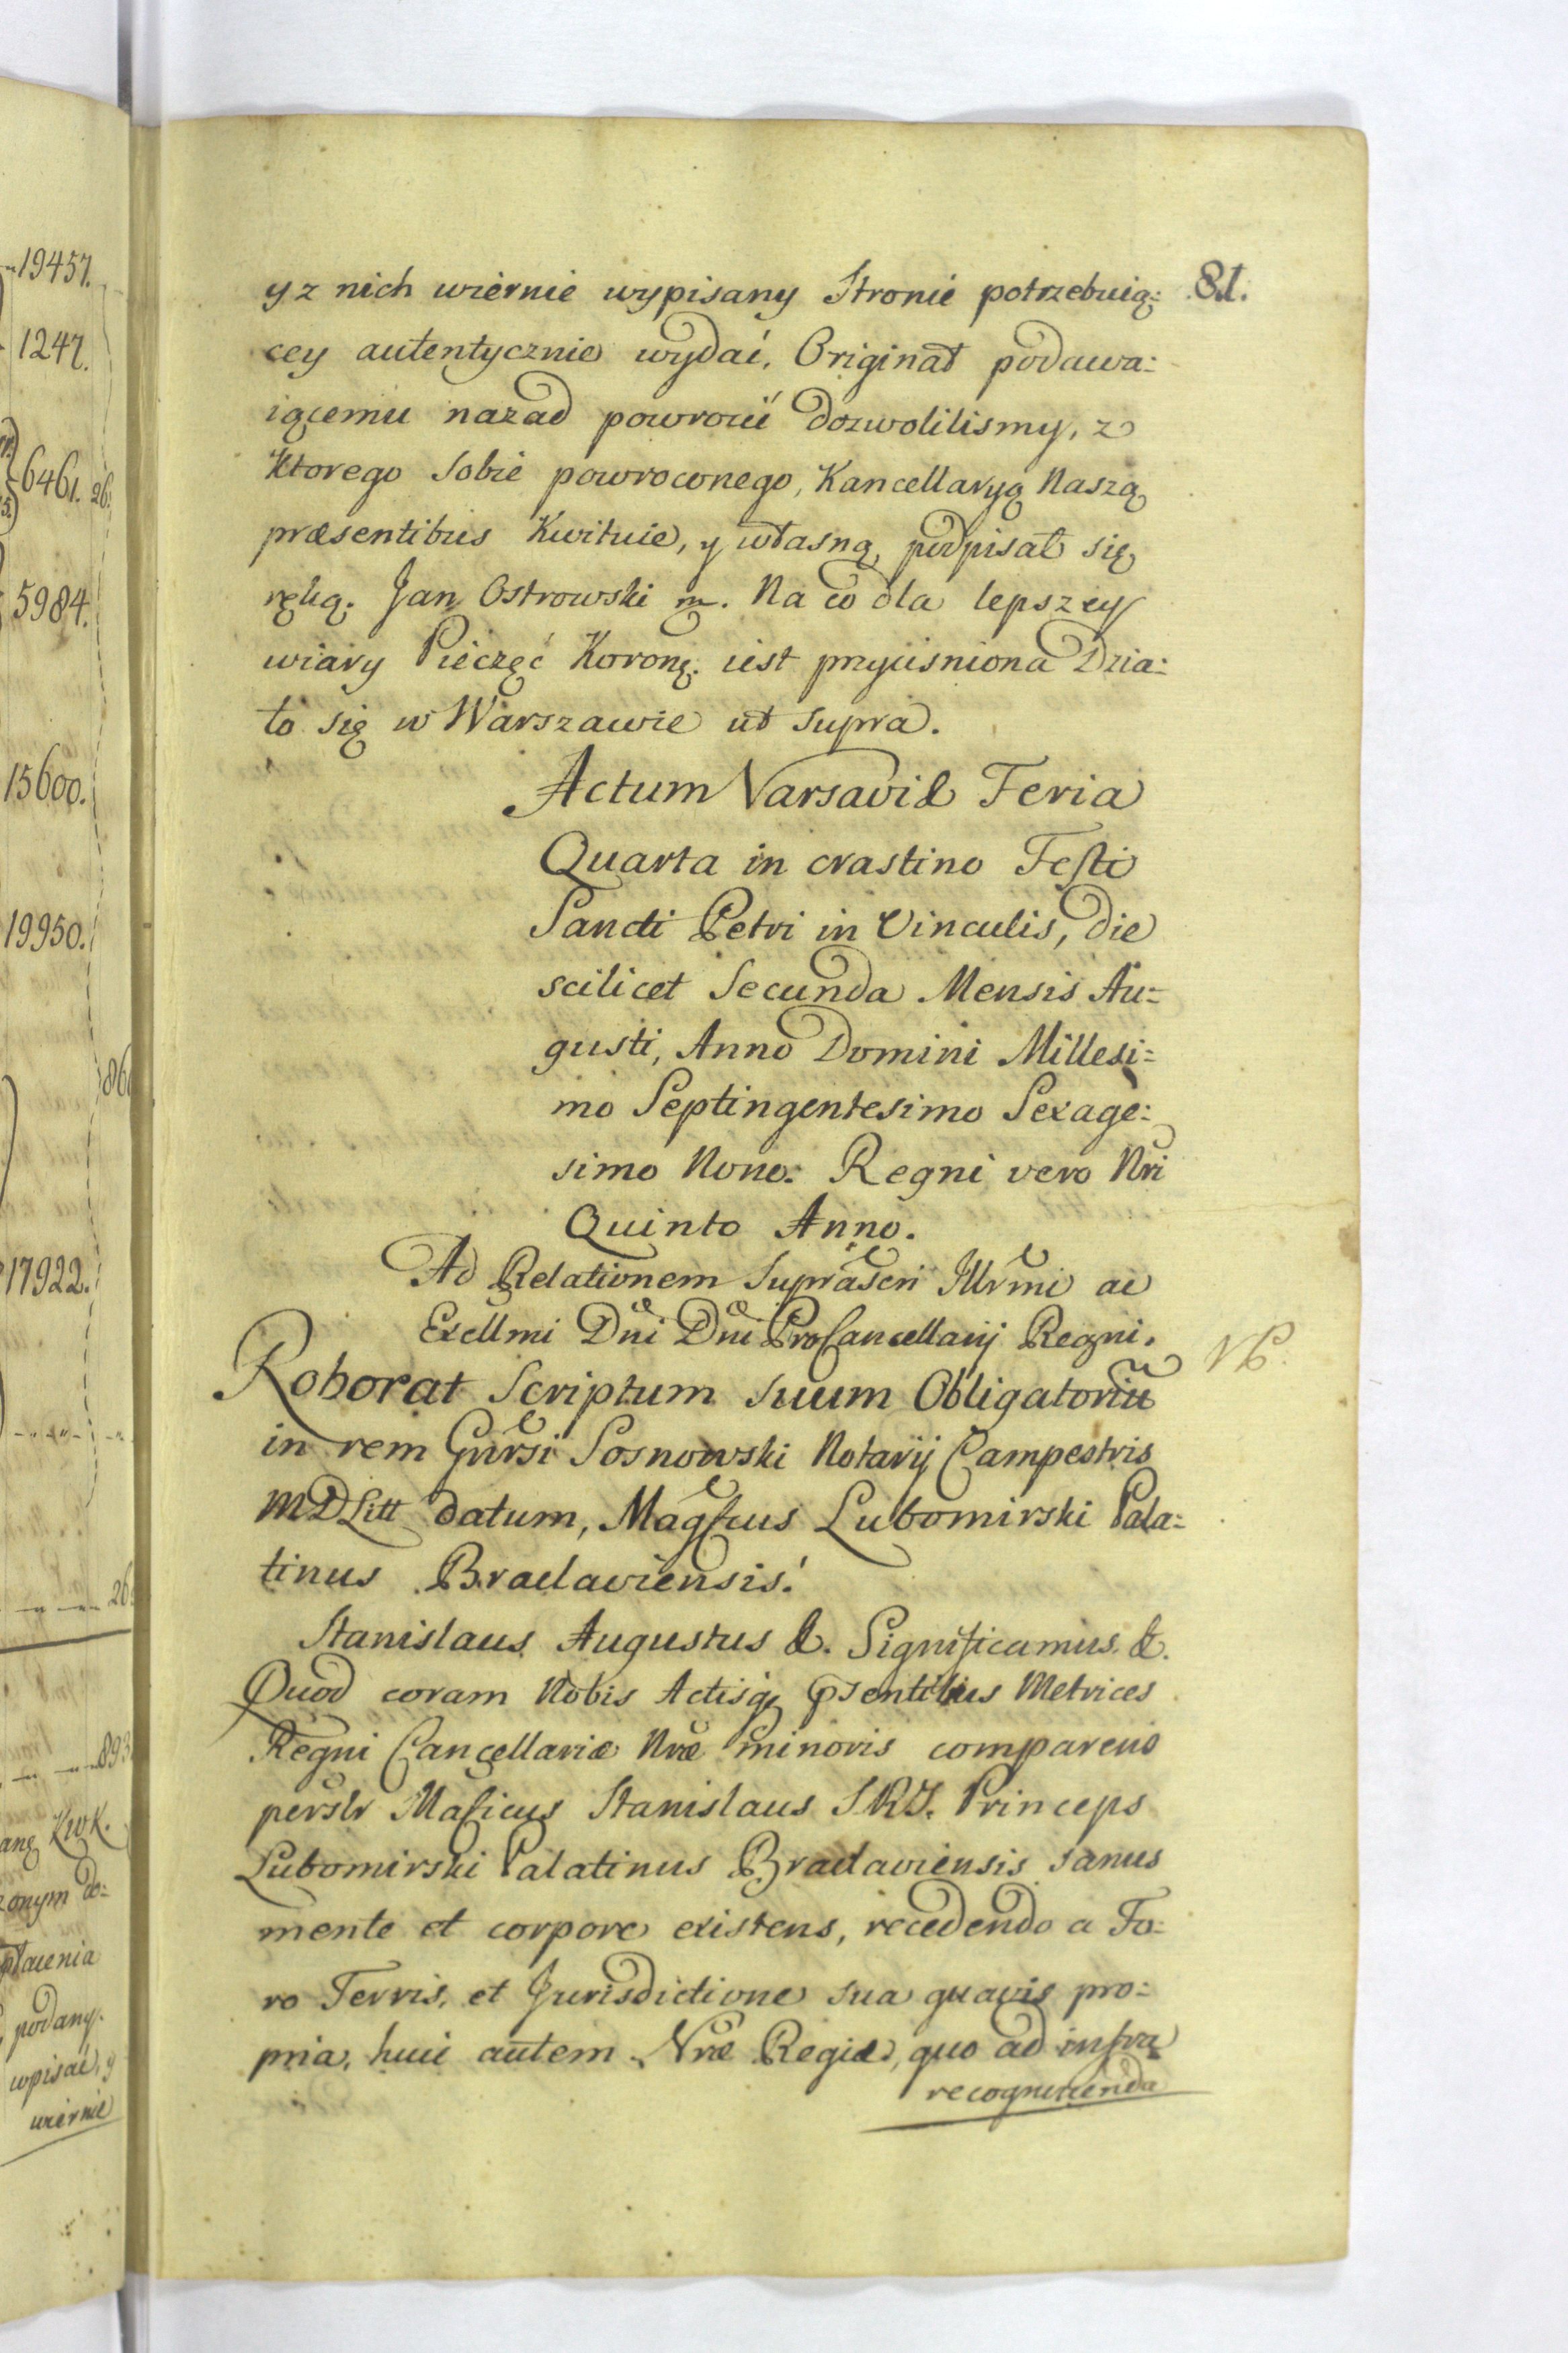 19457.
1247.
6461. 26.
5984.
15600.
19950.
86
17922.
26
893
ang KwK.
zonym do:
płacenia
podany.
wpisać, y
wiernie
81.
y z nich wiernie wypisany Stronie potrzebuią:
cey autentycznie wydać. Originał podawa:
iącemu nazad powrocić dozwolilismy, z
ktorego sobie powroconego, Kancellaryą Naszą
præsentibus Kwituie, y własną podpisał się
ręką. Jan Ostrowski m. Na co dla lepszey
wiary Pieczęć Koronę. iest przyciśniona Dzia:
ło się w Warszawie ut supra.
Actum Varsaviæ Feria
Quarta in crastino Festi
Sancti Petri in Vinculis, die
scilicet Secunda Mensis Au=
gusti, Anno Domini Millesi=
mo Septingentesimo Sexage:
simo Nono. Regni vero Nri
Quinto Anno.
Ad Relationem suprascri Illrmi ac
Exellmi Dni Dni ProCancellarij Regni.
Roborat Scriptum suum Obligatoriu
in rem Gnrsi Sosnowski Notarij Campestris
MDLitt datum, Magficus Lubomirski Pala=
tinus Braclaviensis.
Stanislaus Augustus &. Significamus. &.
Quod coram Nobis Actisq psentibus Metrices
Regni Cancellariæ Nræ minoris comparens
perslr Maficus Stanislaus S.R.I. Princeps
Lubomirski Palatinus Braclaviensis sanus
mente et corpore existens, recedendo a Fo:
ro Terris, et Jurisdictione sua quavis pro:
pria, huic autem Nræ Regiæ, quo ad infra
recognitienda